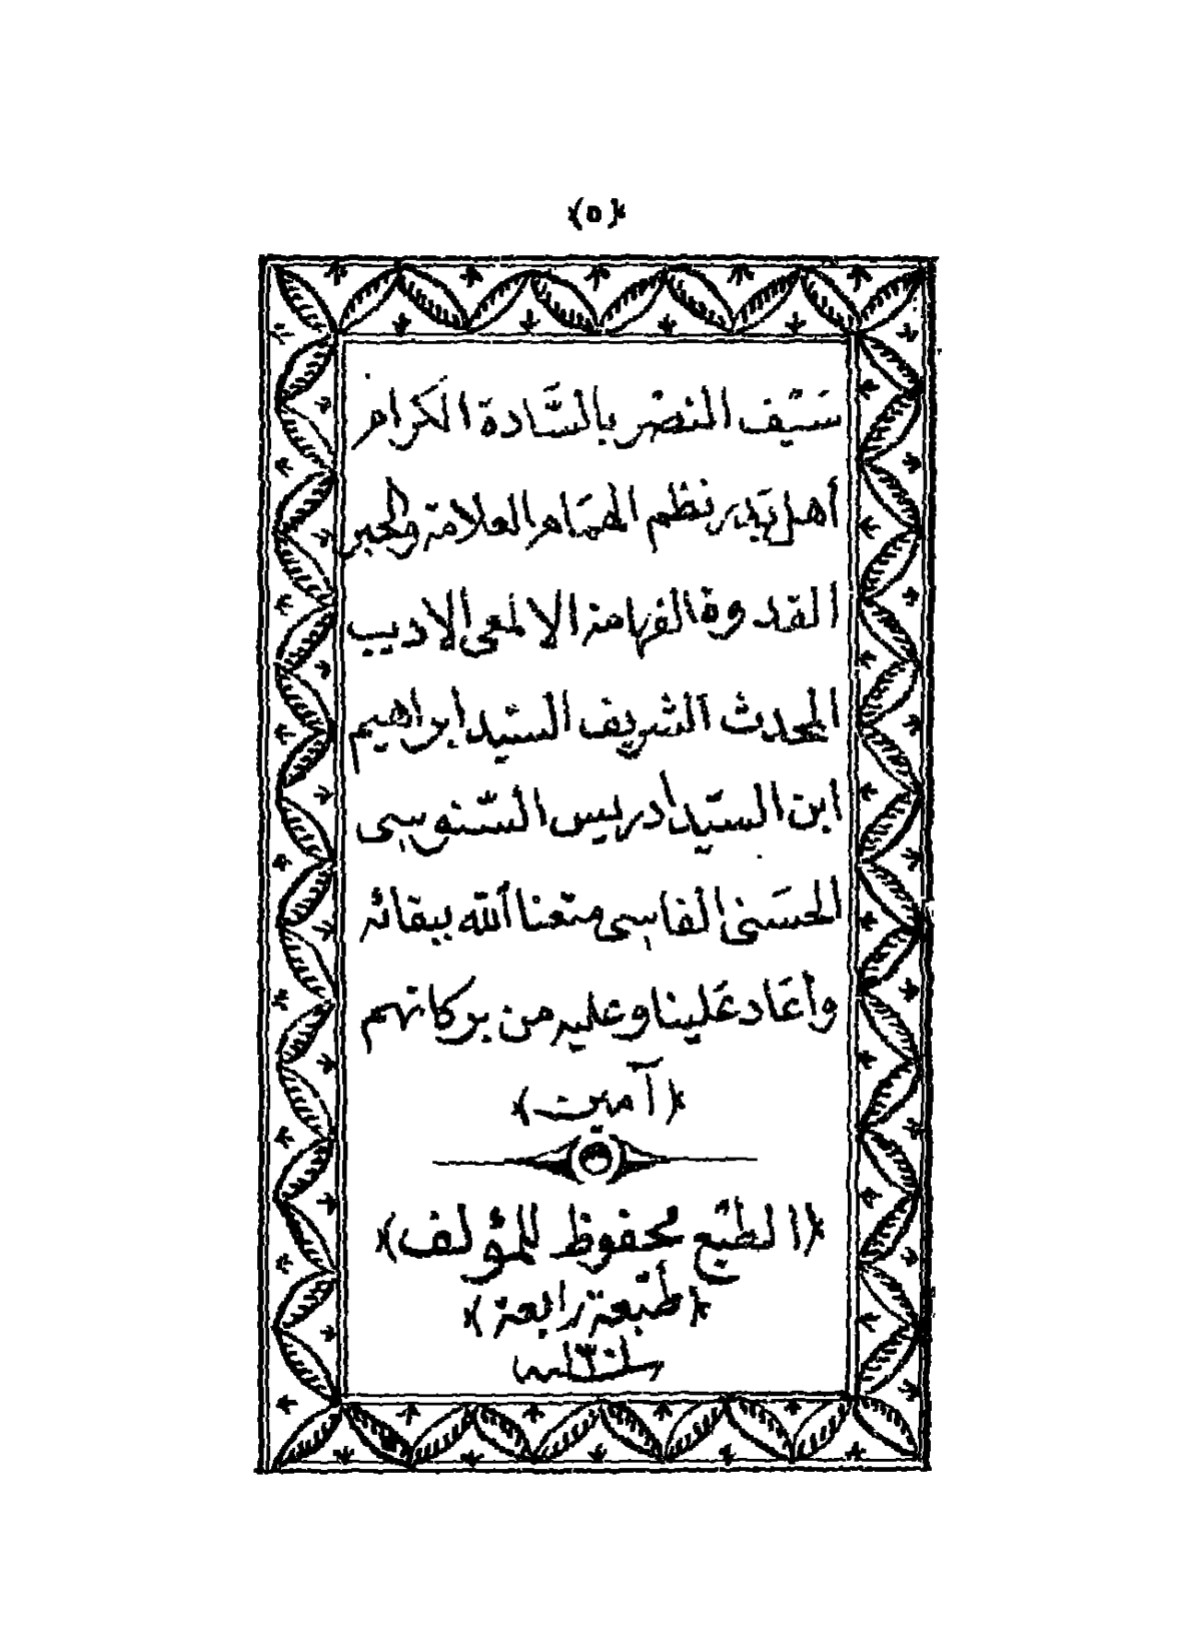 ﴿٥﴾
سَيْف النصْر بالسَّادة الكَرام
أهل بَدر نظم الهمَام العلامة والحبر
القدوة الفهامة الالمعى الاديب
المحدث الشريف السّيد ابراهيم
ابن السيّد ادريس السّنوسى
الحسَنى الفاسى متعنا اللّه ببقائه
وأعَاد عَلينا وعليه من بركاتهم
﴿آمين﴾
﴿الطبْع محفوظ للمؤلف﴾
﴿طبْعة رابعة﴾